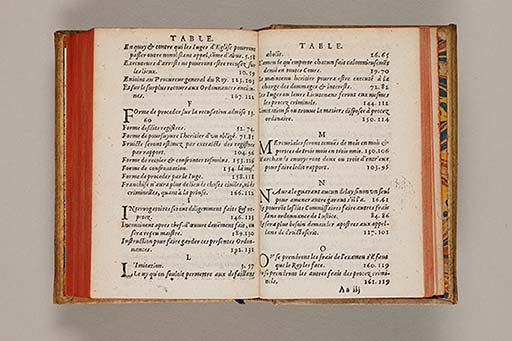 TABLE.
En quoy & contre qui les Iuge d'Eglise pourront
passer outre nonobstant appel, sime d'abus. 5.12
Executeurs d'arrests ne pourront estre recusez sur
les lieux. 10.59
Enioint au Procureur general du Roy. 123.105
Et sur le surplus retourne aux Ordonnances ancien-
nes. 167.111
F
Forme de proceder sur la recusation admise 13.
60
Forme desdits registres. 52.74
Forme de poursuyure l'heritier d'un obligé. 77.81
Fruicts seront estimez par extraicts des registres
par rapport. 104.96
Forme de recoler & confronter tesmoins. 153.116
Forme de confrontation. 154. là mes.
Forme de proceder par le Iuge. 158.117
Franchise n'aura plus de lieu és choses ciuiles, ni és
criminelles, quant à la prinse. 166.111
I
Interrogatoires seront diligemment faits & re-
petez. 146.113
Incontinent apres chef-d'œuure deuëment fait, on
sera receu maistre. 189.130
Instruction pour faire garder ces presentes Ordon-
nances. 192.131
L
L'Imitation. 3.57
Le uy qu'on souloit permettre aux defaillans
TABLE.
abolie. 26.65
demeurera calomnieusement
denié en toutes Cours. 19.70
Le maintenu heritier pourra estre executé à la
charge des dommages & interests. 72.82
Les Iuges ou leurs Lieutenans feront eux mesmes
les procez criminels. 144.112
Limitation si on trouue la matiere disposée à procez
ordinaire. 150.114
M
Mercuriales seront tenuës de mois en mois &
portees de trois mois en trois mois. 130.106
Marchans enuoyeront deux ou trois d'entr'eux
pour faire ledit rapport. 103.95
N
N'Aura le guarant aucun delay sinon un seul
pour amener autre garant s'il l'a. 16.61
Ne pourrōt lesdits Commissaires faire autres frais
sans ordonnance de Iustice. 84.86
Ne sera plus besoin demander apostres aux appel-
lans de Court d'Eglise. 117.101
O
On se prendront les frais de l'examen s'il faut
que le Roy les face. 160.119
Ou se prendront les autres frais des procez crimi-
nels. 161.119
Aa iij